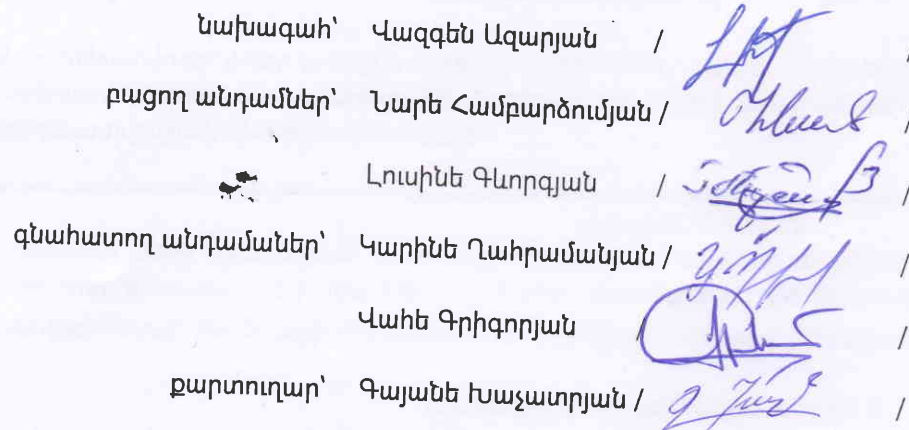 նախագահ՝ Վազգեն Ազարյան / /
բացող անդամներ՝ Նարե Համբարձումյան / /
Լուսինե Գևորգյան / /
գնահատող անդամաներ՝ Կարինե Ղահրամանյան / /
Վահե Գրիգորյան / /
քարտուղար՝ Գայանե Խաչատրյան / /